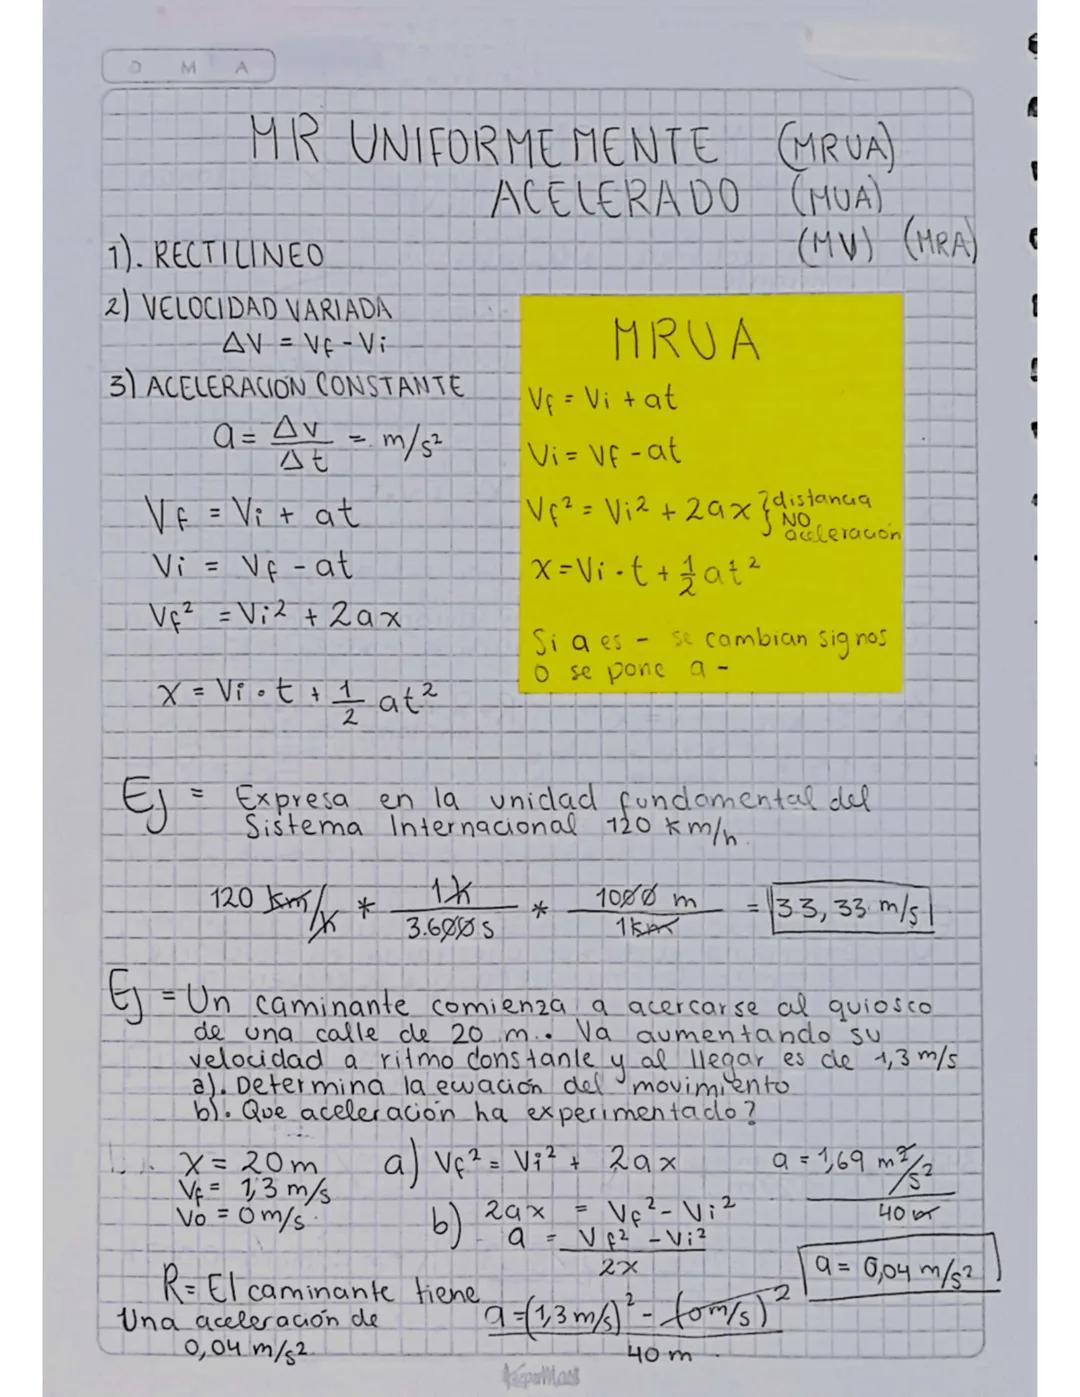 D M A
MR UNIFORMEMENTE (MRUA)
ACELERADO (MUA)
(MV) (MRA)
1). RECTILINEO
2) VELOCIDAD VARIADA
ΔV = Vf - Vi
3) ACELERACION CONSTANTE
a = Δv / Δt = m/s²
Vf = Vi + at
Vi = Vf - at
Vf² = Vi² + 2ax
X = Vi · t + 1/2 at²
MRUA
Vf = Vi + at
Vi = Vf - at
Vf² = Vi² + 2ax } distancia
NO
aceleración
X = Vi · t + 1/2 at²
Si a es - se cambian signos
O se pone a -
Ej = Expresa en la unidad fundamental del
Sistema Internacional 120 km/h.
120 km/h * 1h / 3.600 s * 1000 m / 1km = 33,33 m/s
Ej = Un caminante comienza a acercarse al quiosco
de una calle de 20 m.. Va aumentando su
velocidad a ritmo constante y al llegar es de 1,3 m/s
a). Determina la ecuación del movimiento
b). Que aceleración ha experimentado?
X = 20m
Vf = 1,3 m/s
Vo = 0 m/s.
a) Vf² = Vi² + 2ax
b) 2ax = Vf² - Vi²
a = Vf² - Vi² / 2x
a = (1,3 m/s)² - (0 m/s)² / 40 m
a = 1,69 m²/s² / 40 m
a = 0,04 m/s²
R = El caminante tiene
Una aceleración de
0,04 m/s².